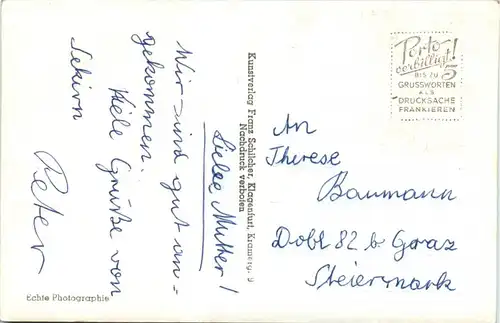 Liebe Mutter!
Wir sind gut an-
gekommen.
Viele Grüße von
Sekirn
Peter
Echte Photographie
Kunstverlag Franz Schilcher, Klagenfurt, Kramerg. 9
Nachdruck verboten
Porto-
verbilligt!
BIS ZU 5
GRUSSWORTEN
ALS
DRUCKSACHE
FRANKIEREN
An
Therese
Baumann
Dobl 82 b Graz
Steiermark